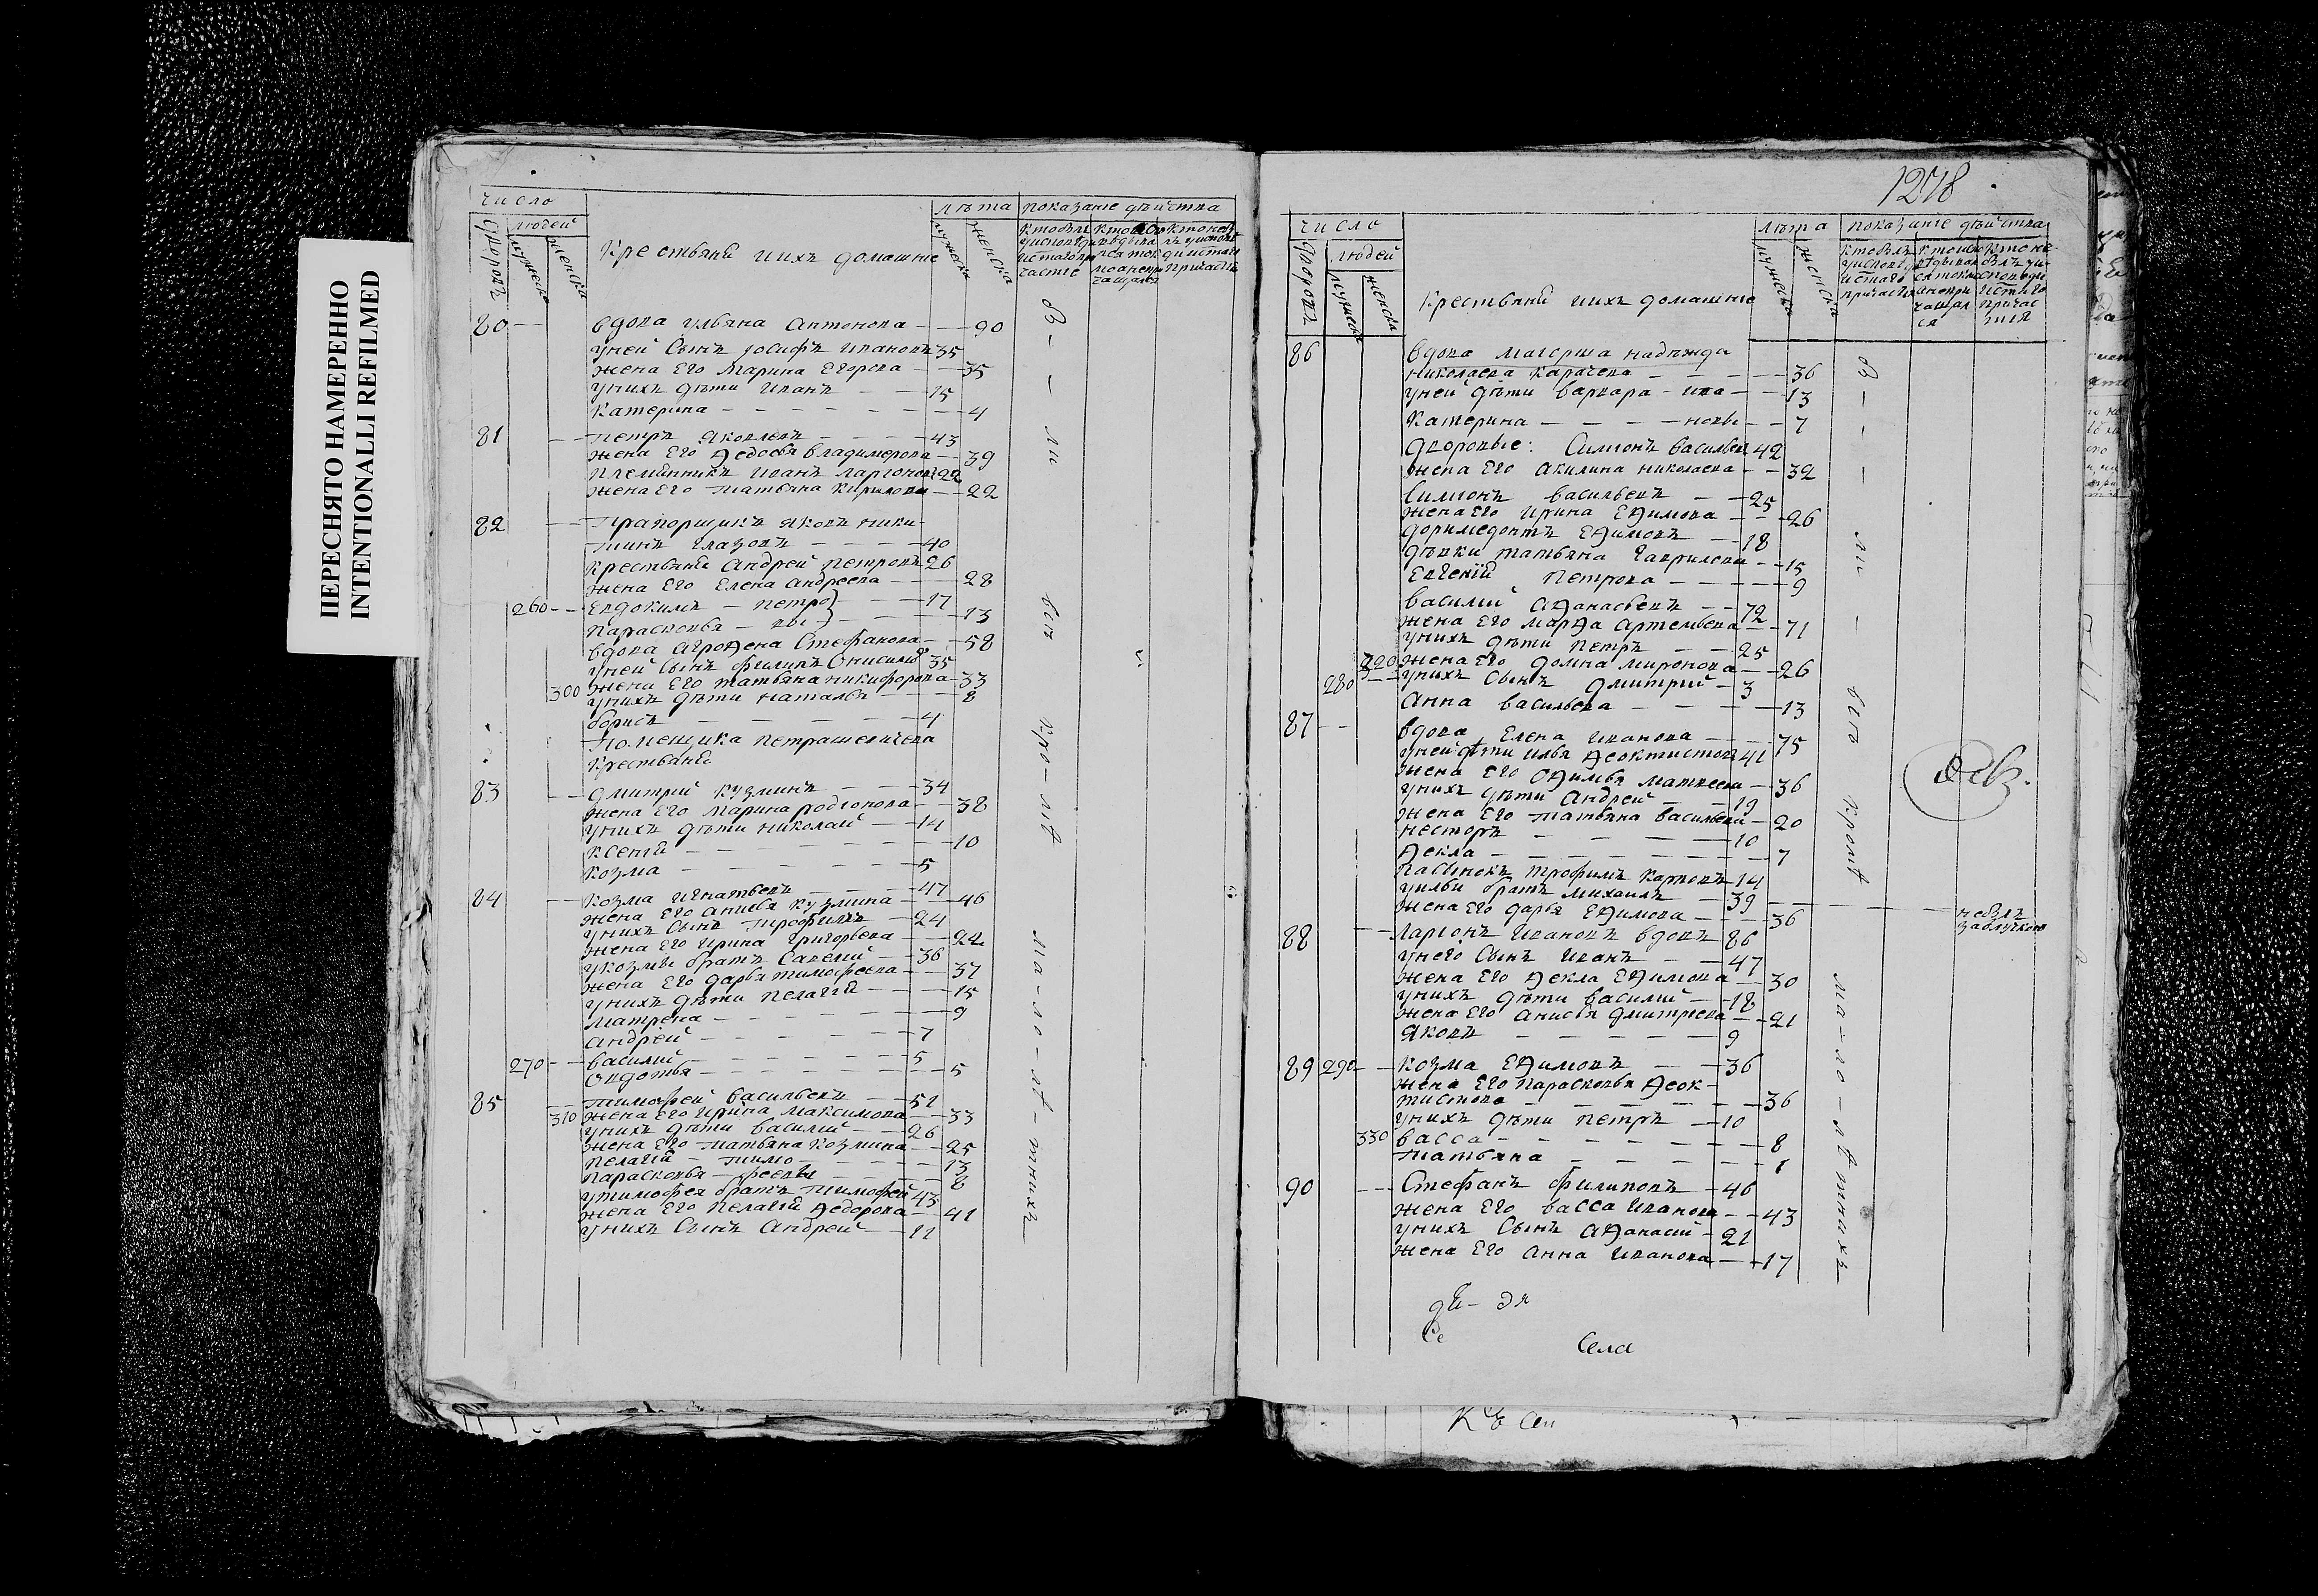 ПЕРЕСНЯТО НАМЕРЕННО
INTENTIONALLI REFILMED
число
людей
лѣта
показанiе дѣйства
дворовъ
мужеска
женска
Крестьяне и ихъ домашнiе
мужеска
женска
80 вдова Ульяна Антонова 90
у ней сынъ Iосифъ Ивановъ 35
жена его Марина Егорова 35
у нихъ дѣти Иванъ 15
Катерина 4
81 Петръ Яковлевъ 43
жена его Ѳедосья Владимерова 39
племянникъ Иванъ Ларiоновъ 22
жена его Татьяна Кирилова 22
82 Прапорщикъ Яковъ Ники-
тинъ Глазовъ 40
Крестьяне Андрей Петровъ 26
жена его Елена Андреева 28
260 Евдокимъ – Петро} 17
Парасковья – вы} 13
вдова Агроѳена Стефанова 58
у ней сынъ Филипъ Онисимов 35
300 жена его Татьяна Никифорова 33
у нихъ дѣти Наталья 8
Борисъ 4
Помещика Петрашевичева
Крестьяне
83 Дмитрий Кузминъ 34
жена его Марина Родiонова 38
у нихъ дѣти Николай 14
Ксенiя 10
Козма 5
84 Козма Игнатьевъ 47
жена его Анисья Кузмина 46
у нихъ сынъ Трофимъ 24
жена его Ирина Григорьева 24
у Козмы братъ Савелий 36
жена его Дарья Тимофеева 37
у нихъ дѣти Пелагiя 15
Матрена 9
Андрей 7
270 Василий 5
Овдотья 5
85 Тимофей Васильевъ 51
310 жена его Ирина Максимова 33
у нихъ дѣти Василий 26
жена его Татьяна Козмина 25
Пелагiя – Тимо 13
Парасковья – феевы 8
у Тимофея братъ Тимофей 43
жена его Пелагiя Ѳедорова 41
у нихъ сынъ Андрей 11
в – – ли въ кро-лѣ ма-ло лѣ-тнихъ
1278
число
людей
лѣта
показанiе дѣйства
дворовъ
мужеска
женска
Крестьяне и ихъ домашнiе
мужеска
женска
86 вдова маiорша Надѣжда
Николаева Карачева 36
у ней дѣти Варвара – ива 13
Катерина – новы 7
Дворовые: Симiонъ Васильев 42
жена его Акилина Николаева 32
Симiонъ Васильевъ 25
жена его Ирина Еѳимова 26
Доримедонтъ Еѳимовъ 18
дѣвки Татьяна Гаврилова 15
Евгенiя Петрова 9
Василий Аѳанасьевъ 72
жена его Марѳа Артемьева 71
у нихъ дѣти Петръ 25
320 жена его Домна Миронова 26
280 у нихъ сынъ Дмитрий 3
Анна Васильева 13
87 вдова Елена Иванова 75
у ней дѣти Илья Ѳеоктистов 41
жена его Оѳимья Матвеева 36
у нихъ дѣти Андрей 19
жена его Татьяна Васильева 20
Несторъ 10
Ѳекла 7
Пасынокъ Трофимъ Карповъ 14
у Ильи братъ Михаилъ 39
жена его Дарья Еѳимова 36
небылъ
88 Ларiонъ Ивановъ вдовъ 86
у него сынъ Иванъ 47
жена его Ѳекла Еѳимова 30
у нихъ дѣти Василий 18
жена его Анисья Дмитрiева 21
Яковъ 9
89 290 Козма Еѳимовъ 36
жена его Парасковья Ѳеок-
тистова 36
у нихъ дѣти Петръ 10
330 Васса 8
Татьяна 1
90 Стефанъ Филиповъ 46
жена его Васса Иванова 43
у нихъ сынъ Аѳанасий 21
жена его Анна Иванова 17
Села